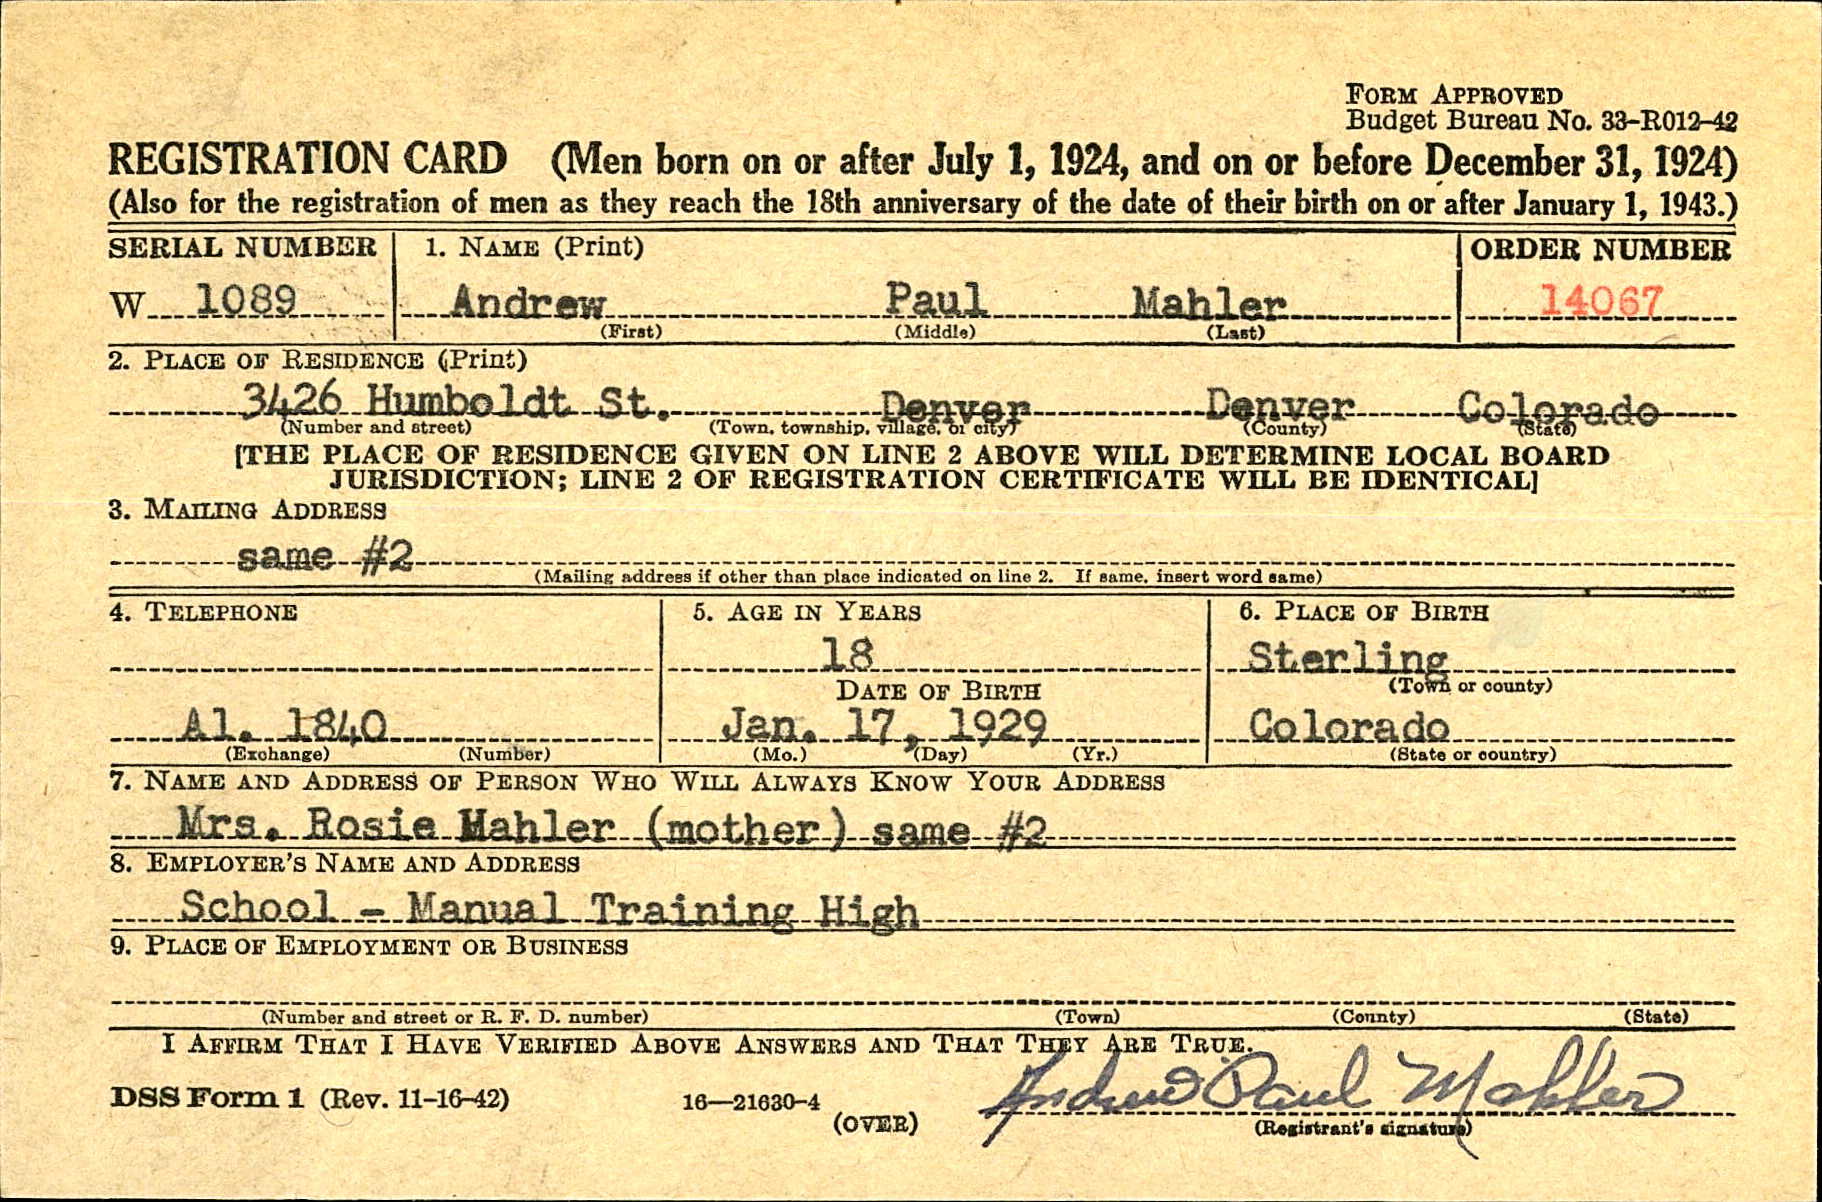 FORM APPROVED
Budget Bureau No. 33-R012-42
REGISTRATION CARD (Men born on or after July 1, 1924, and on or before December 31, 1924)
(Also for the registration of men as they reach the 18th anniversary of the date of their birth on or after January 1, 1943.)
SERIAL NUMBER 1. NAME (Print) ORDER NUMBER
W 1089 Andrew Paul Mahler 14067
(First) (Middle) (Last)
2. PLACE OF RESIDENCE (Print)
3426 Humboldt St. Denver Denver Colorado
(Number and street) (Town, township, village, or city) (County) (State)
[THE PLACE OF RESIDENCE GIVEN ON LINE 2 ABOVE WILL DETERMINE LOCAL BOARD
JURISDICTION; LINE 2 OF REGISTRATION CERTIFICATE WILL BE IDENTICAL]
3. MAILING ADDRESS
same #2
(Mailing address if other than place indicated on line 2. If same, insert word same)
4. TELEPHONE 5. AGE IN YEARS 6. PLACE OF BIRTH
18 Sterling
DATE OF BIRTH (Town or county)
Al. 1840 Jan. 17, 1929 Colorado
(Exchange) (Number) (Mo.) (Day) (Yr.) (State or country)
7. NAME AND ADDRESS OF PERSON WHO WILL ALWAYS KNOW YOUR ADDRESS
Mrs. Rosie Mahler (mother) same #2
8. EMPLOYER'S NAME AND ADDRESS
School - Manual Training High
9. PLACE OF EMPLOYMENT OR BUSINESS
(Number and street or R. F. D. number) (Town) (County) (State)
I AFFIRM THAT I HAVE VERIFIED ABOVE ANSWERS AND THAT THEY ARE TRUE.
Andrew Paul Mahler
DSS Form 1 (Rev. 11-16-42) 16—21630-4
(OVER) (Registrant's signature)